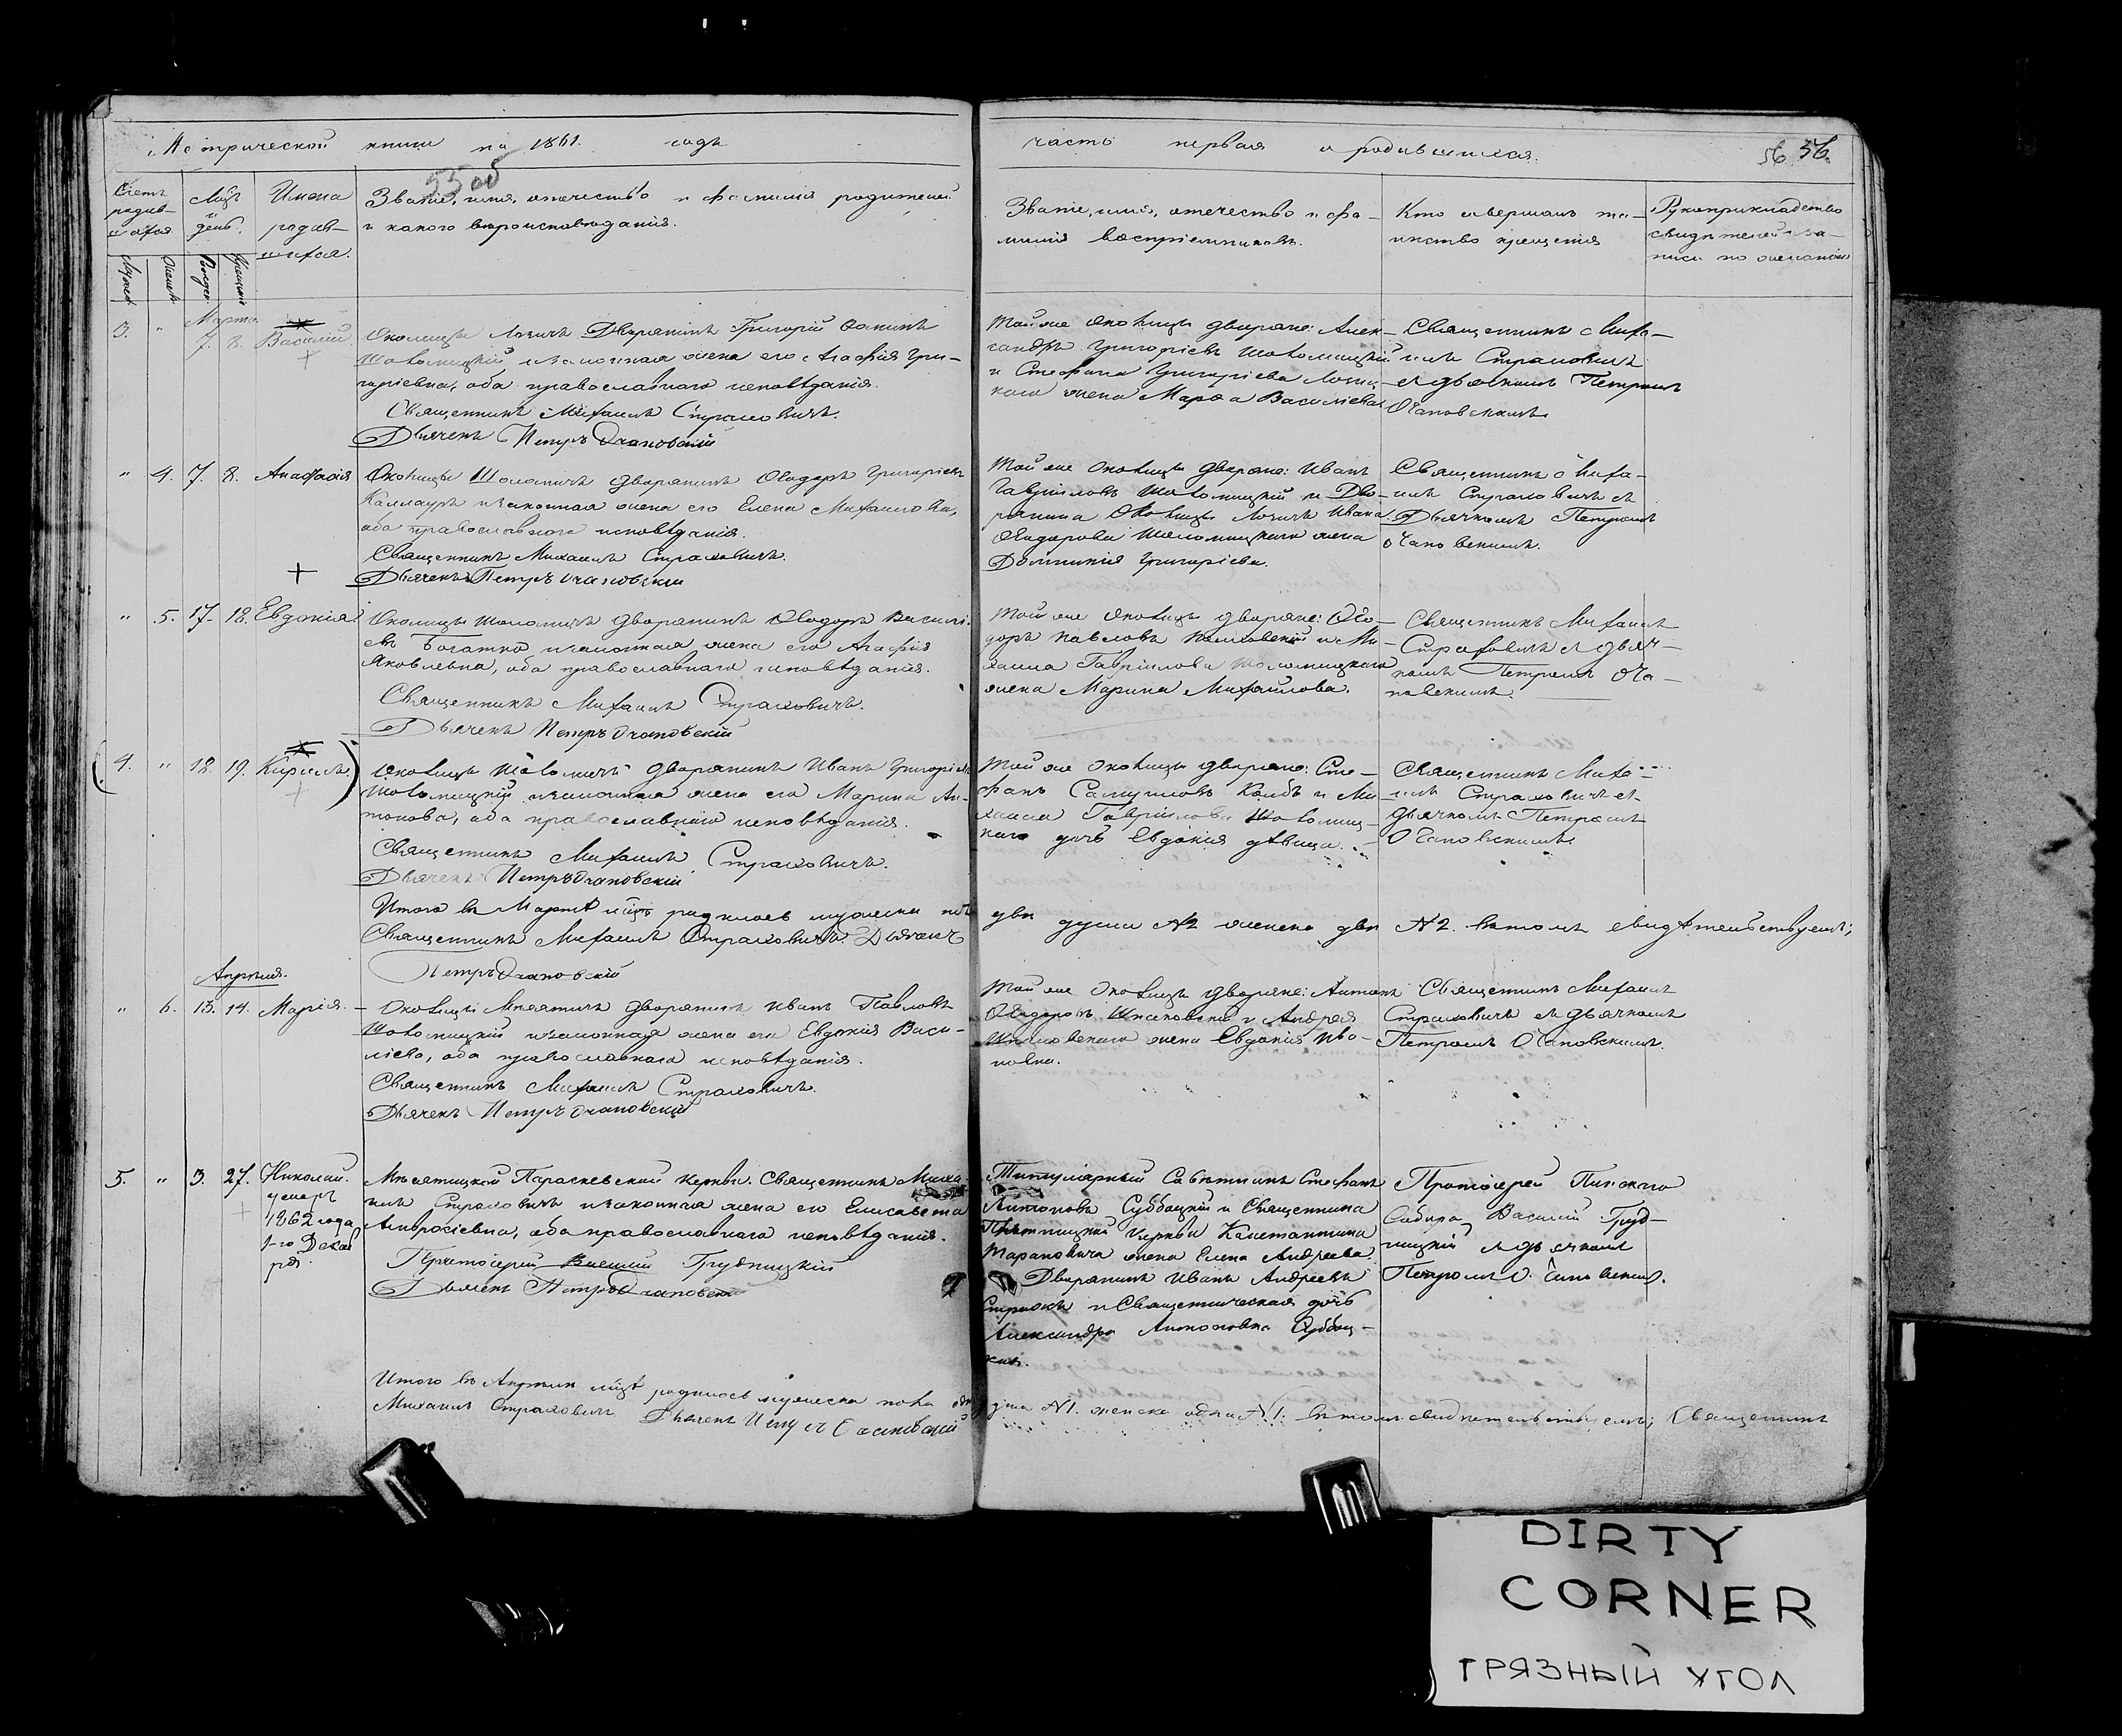 Метрической книги на 1861. годъ
часть первая о родившихся.
56 56.
Счетъ родив-шихся
Мужеск. Женск.
Мцъ и день.
Рожден. Крещенія
Имена родив-шихся.
Званіе, имя, отечество и фамилія родителей
и какого вѣроисповѣданія.
Званіе, имя, отечество и фа-
милія воспріемниковъ.
Кто совершалъ та-
инство крещенія
Рукоприкладство
свидѣтелей за-
писи по желанію
Марта
3. " 7. 8. Василій
Околицы Дворянинъ Григорій
Шоломицкій, и законная жена его Агафія Гри-
горіевна, оба православнаго исповѣданія.
Священникъ Михаилъ Страховичъ.
Дьячекъ Петръ Очаповскій
Той же околицы дворяне: Алек-
сандръ Григоріевъ Шоломицкій
и Стефана Григоріева
жена Марѳа Василіева
Священникъ Миха-
илъ Страховичъ
съ дьячкомъ Петромъ
Очаповскимъ.
" 4. 7. 8. Анастасія
Околицы дворянинъ Ѳеодоръ Григоріевъ
Каллауръ и законная жена его Елена Михаилова,
оба православнаго исповѣданія.
Священникъ Михаилъ Страховичъ.
Дьячекъ Петръ Очаповскій
Той же околицы дворяне: Иванъ
Гавріиловъ Шоломицкій и Дво-
рянина Околицы Ивана
Ѳеодорова Шоломицкаго жена
Домникія Григоріева.
Священникъ Миха-
илъ Страховичъ съ
Дьячкомъ Петромъ
Очаповскимъ.
" 5. 17. 18. Евдокія
Околицы дворянинъ Ѳеодоръ Василі-
евъ и законная жена его Агафія
Яковлевна, оба православнаго исповѣданія.
Священникъ Михаилъ Страховичъ.
Дьячекъ Петръ Очаповскій
Той же околицы дворяне: Ѳео-
доръ Павловъ и Ми-
хаила Гавріилова Шоломицкаго
жена Марина Михайлова.
Священникъ Михаилъ
Страховичъ съ дьяч-
комъ Петромъ Оча-
повскимъ.
4. " 18. 19. Кириллъ
Околицы дворянинъ Иванъ Григоріевъ
Шоломицкій и законная жена его Марина Ан-
тонова, оба православнаго исповѣданія.
Священникъ Михаилъ Страховичъ.
Дьячекъ Петръ Очаповскій
Той же околицы дворяне: Сте-
фанъ Самуиловъ Колбъ и Ми-
хаила Гавріилова Шоломиц-
каго дочь Евдокія дѣвица.
Священникъ Миха-
илъ Страховичъ съ
дьячкомъ Петромъ
Очаповскимъ.
Итого въ Мартѣ мцѣ родилось мужеска пола двѣ души №2 женска двѣ №2. въ томъ свидѣтельствуемъ;
Священникъ Михаилъ Страховичъ. Дьячекъ
Петръ Очаповскій
Апрѣля.
" 6. 13. 14. Марія.
Околицы дворянинъ Иванъ Павловъ
Шоломицкій и законная жена его Евдокія Васи-
ліева, оба православнаго исповѣданія.
Священникъ Михаилъ Страховичъ.
Дьячекъ Петръ Очаповскій
Той же околицы дворяне: Антонъ
Ѳеодоровъ и Андрея
жена Евдокія Ива-
новна.
Священникъ Михаилъ
Страховичъ съ дьячкомъ
Петромъ Очаповскимъ.
5. " 3. 27. Николай.
умеръ
1862 года
1-го Декаб
ря.
Параскевской церкви Священникъ Миха-
илъ Страховичъ и законная жена его Елисавета
Амвросіевна, оба православнаго исповѣданія.
Протоіерей Василій Грудницкій
Дьячекъ Петръ Очаповскій
Титулярный Совѣтникъ Стефанъ
Антоновъ Субботскій и Священника
церкви Константина
Тарановича жена Елена Андреева
Дворянинъ Иванъ Андреевъ
и Священническая дочь
Александра Антоновна Суббоц-
кая.
Протоіерей Пинскаго
Собора Василій Груд-
ницкій съ дьячкомъ
Петромъ Очаповскимъ.
Итого въ Апрѣлѣ мцѣ родилось мужеска пола одна душа №1. женска одна №1. въ томъ свидѣтельствуемъ; Священникъ
Михаилъ Страховичъ Дьячекъ Петръ Очаповскій
DIRTY
CORNER
ГРЯЗНЫЙ УГОЛ